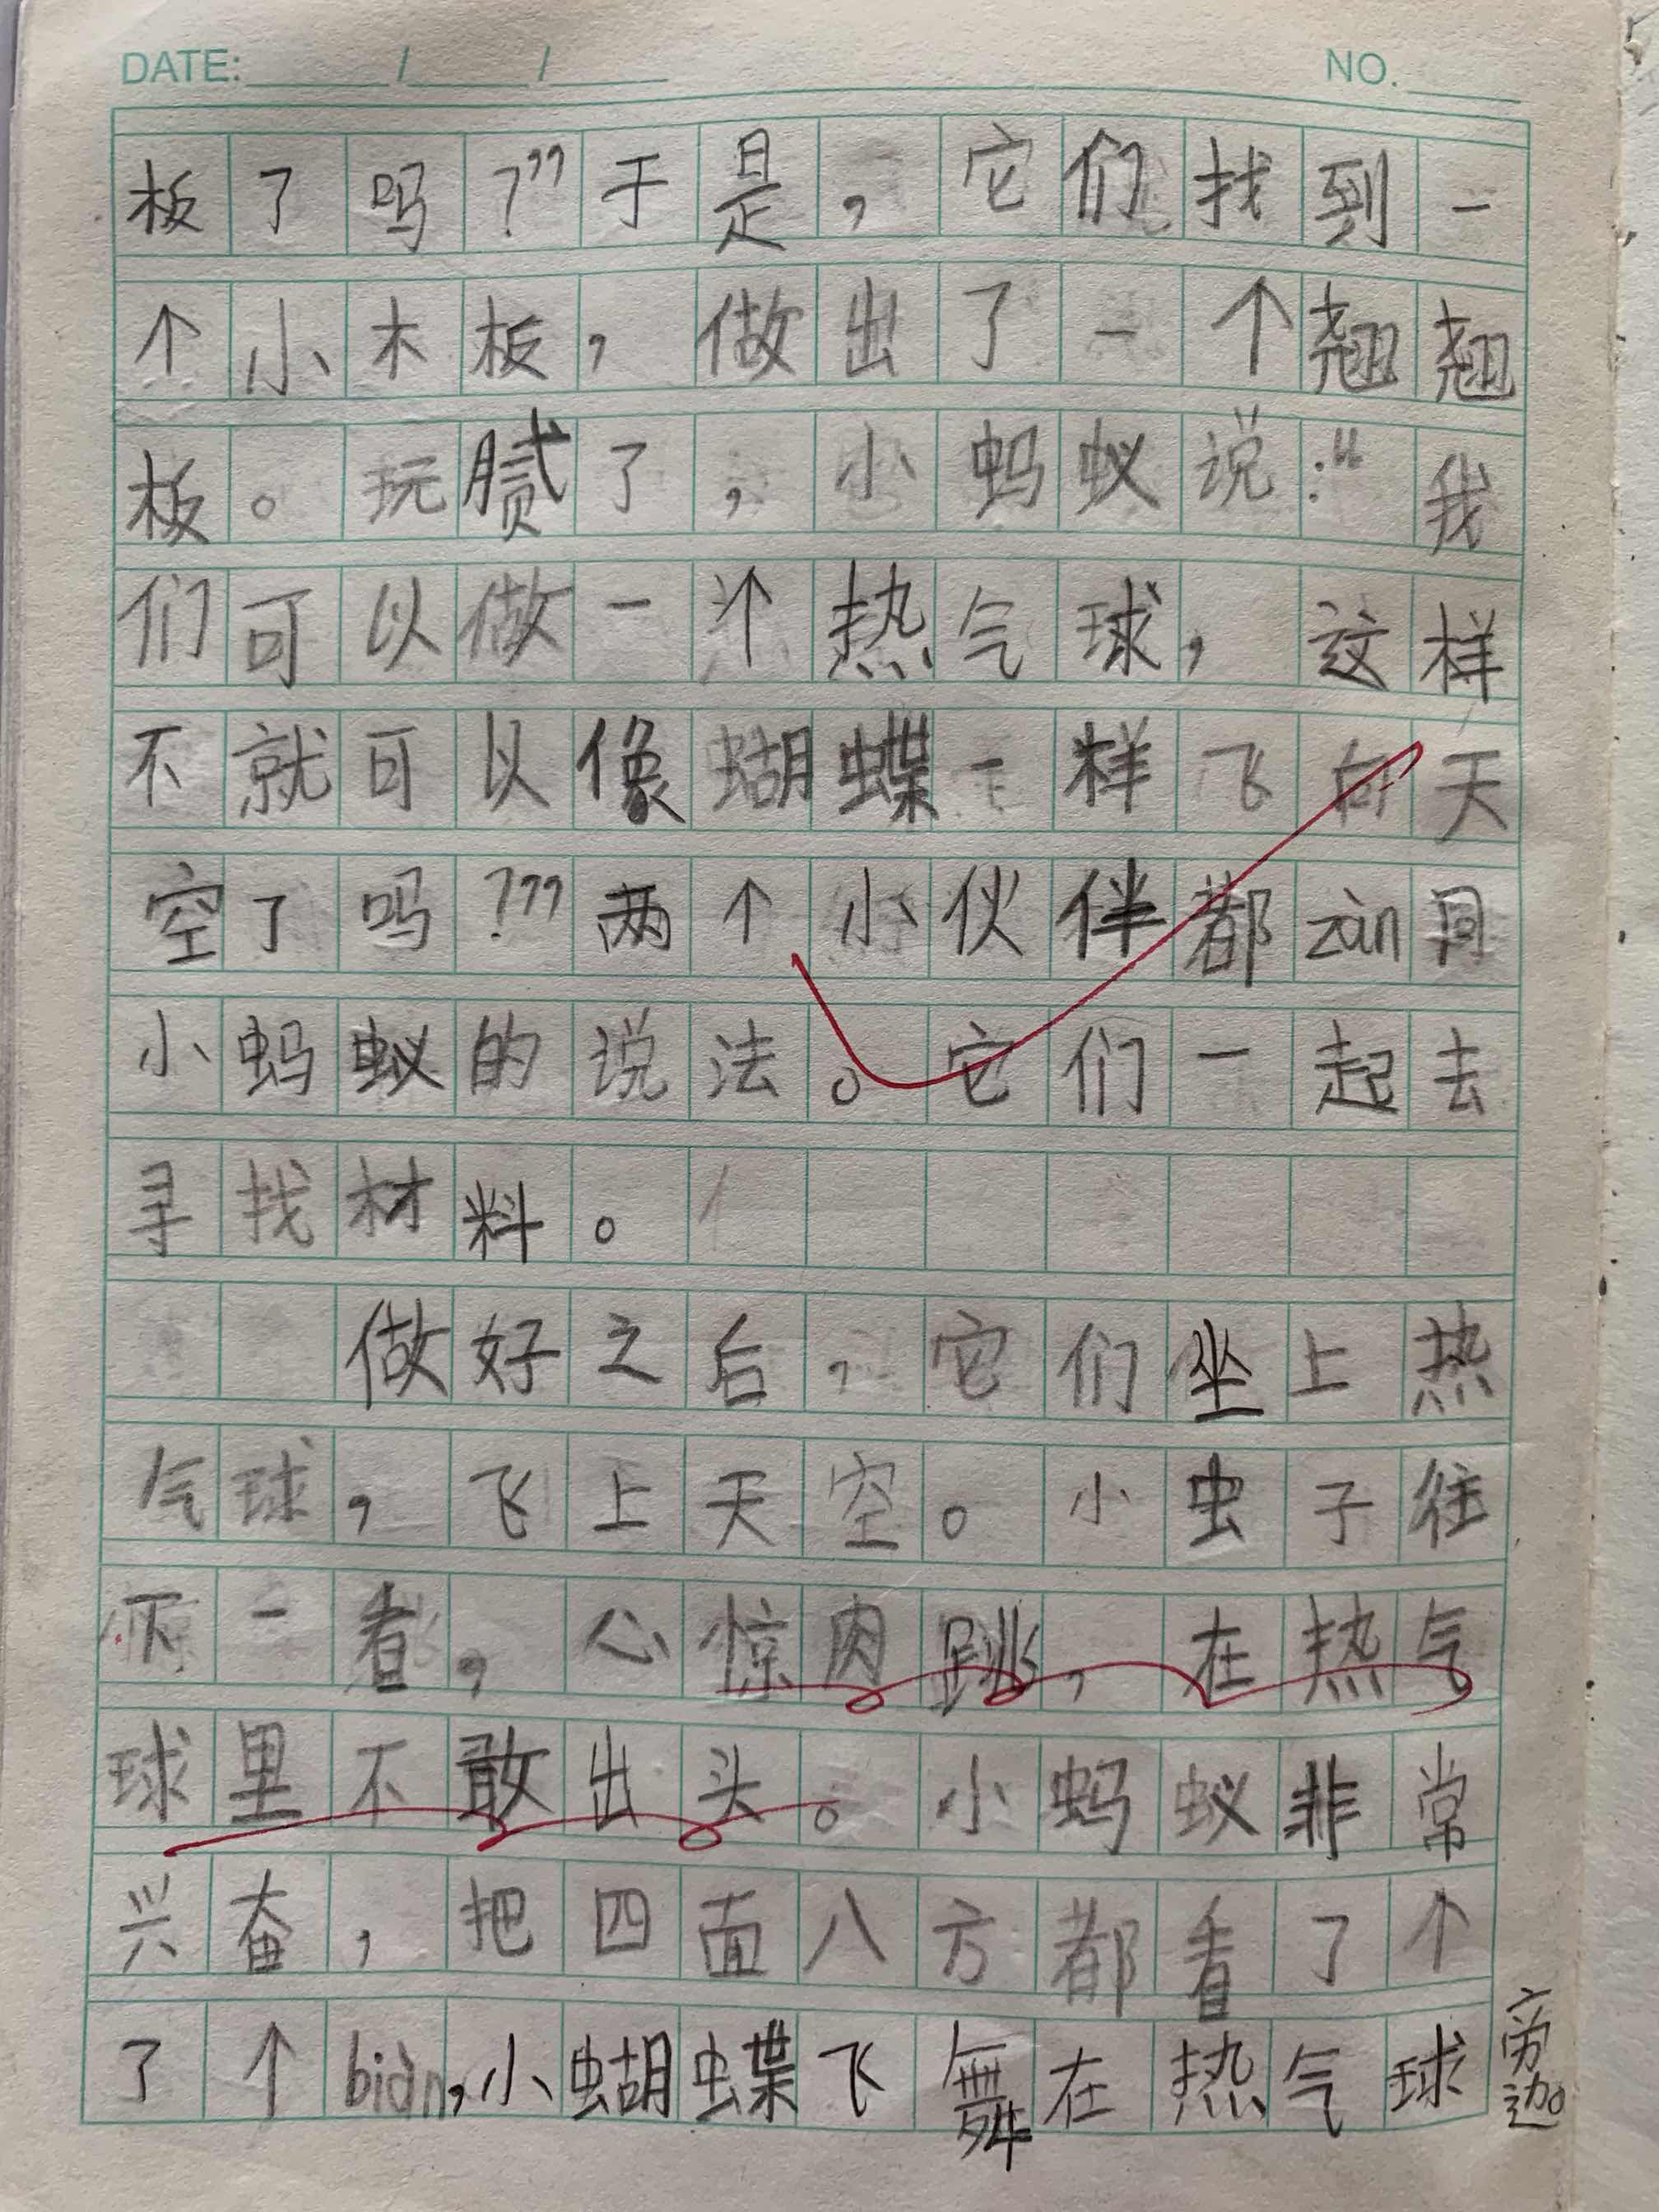 DATE: / / NO.
板了吗?”于是,它们找到一
个小木板,做出了一个翘翘
板。玩腻了,小蚂蚁说:“我
们可以做一个热气球,这样
不就可以像蝴蝶一样飞向天
空了吗?”两个小伙伴都zàn同
小蚂蚁的说法。它们一起去
寻找材料。
做好之后,它们坐上热
气球,飞上天空。小虫子往
下一看,心惊肉跳,在热气
球里不敢出头。小蚂蚁非常
兴奋,把四面八方都看了个
了个biàn,小蝴蝶飞舞在热气球旁边